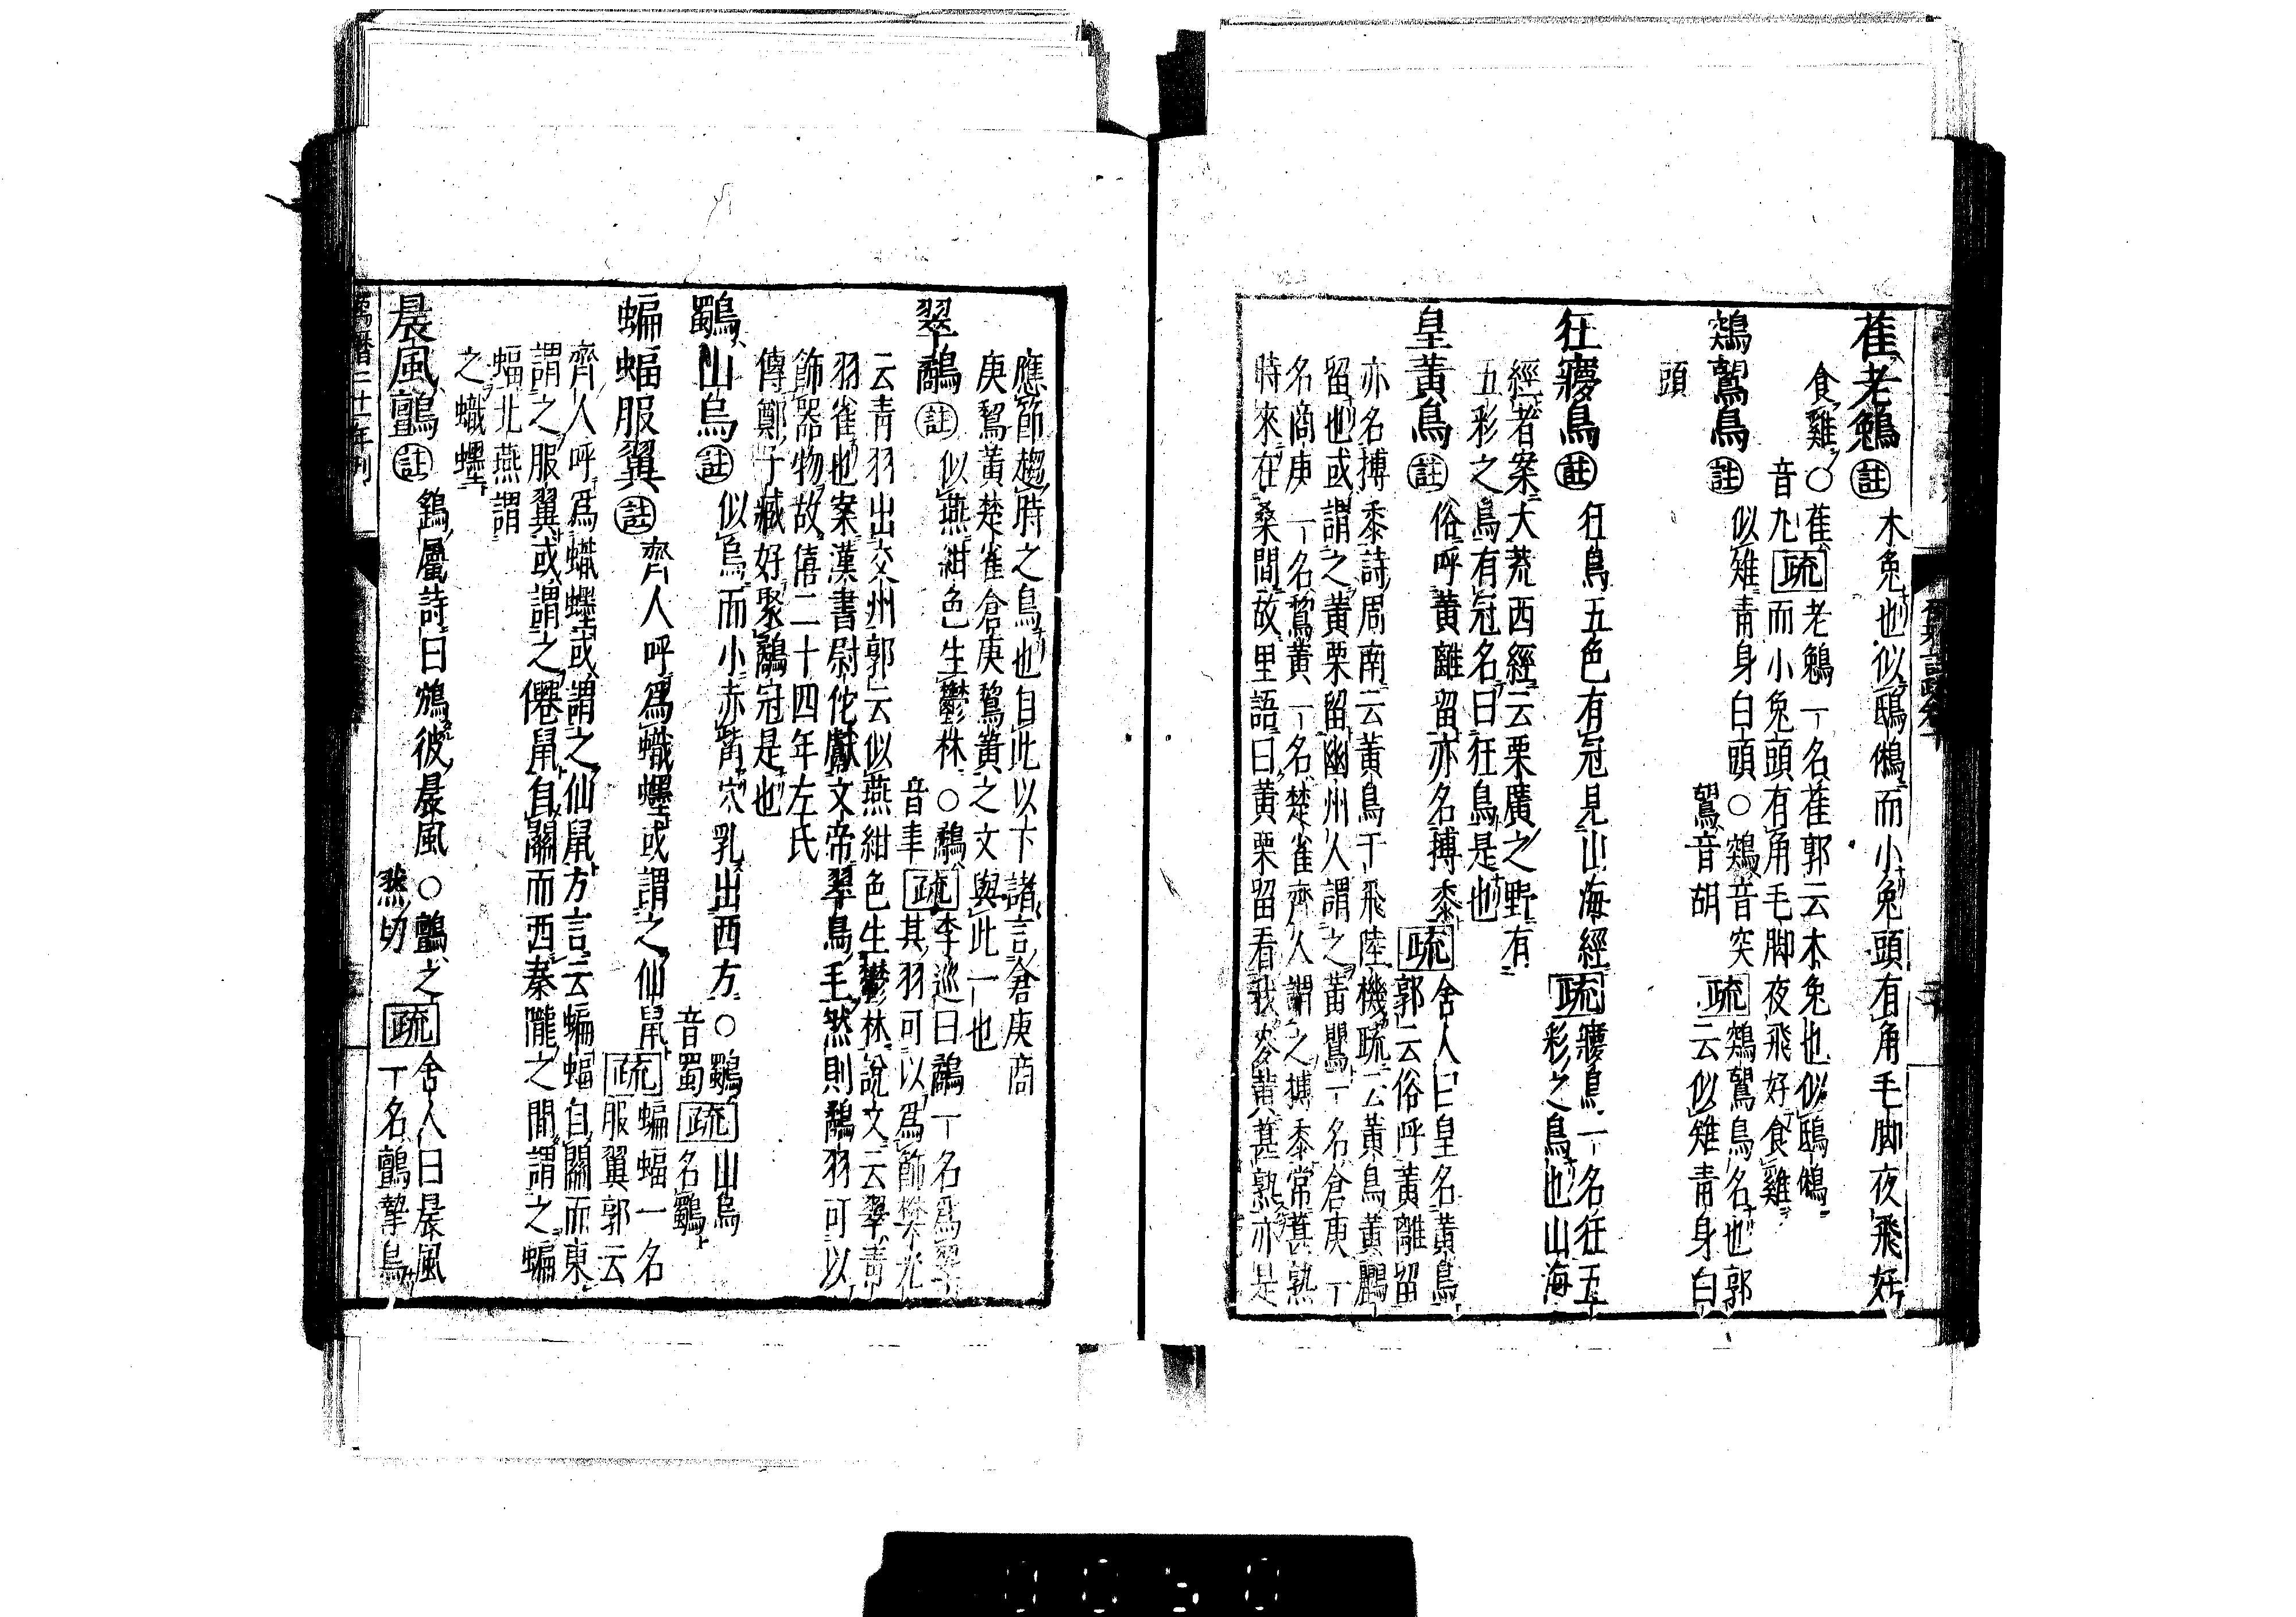 萑老鵵註木兔也似鴟鵂而小兔頭有角毛脚夜飛好
食雞○萑
音丸疏老鵵一名萑郭云木兔也似鴟鵂
而小兔頭有角毛脚夜飛好食雞
鶟鶦鳥註似雉青身白頭○鶟音突
鶦音胡疏鶟鶦鳥名也郭
云似雉青身白
頭
狂㝱鳥註狂鳥五色有冠見山海經疏㝱鳥一名狂五
彩之鳥也山海
經者案大荒西經云栗廣之野有
五彩之鳥有冠名曰狂鳥是也
皇黃鳥註俗呼黃離留亦名搏黍疏舍人曰皇名黃鳥
郭云俗呼黃離留
亦名搏黍詩周南云黃鳥于飛陸機疏云黃鳥黃鸝
留也或謂之黃栗留幽州人謂之黃鸎一名倉庚一
名商庚一名鵹黃一名楚雀齊人謂之搏黍常葚熟
時來在桑間故里語曰黃栗留看我麥黃葚熟亦是
應節趨時之鳥也自此以下諸言倉庚商
庚鵹黃楚雀倉庚鵹黃之文與此一也
翠鷸註似燕紺色生鬱林○鷸
音聿疏李巡曰鷸一名爲翠
其羽可以爲飾樊光
云青羽出交州郭云似燕紺色生鬱林說文云翠青
羽雀也案漢書尉佗獻文帝翠鳥毛然則鷸羽可以
飾器物故僖二十四年左氏
傳鄭子臧好聚鷸冠是也
鸀山烏註似烏而小赤觜穴乳出西方○鸀
音蜀疏山烏
名鸀
蝙蝠服翼註齊人呼爲蟙䘃或謂之仙鼠疏蝙蝠一名
服翼郭云
齊人呼爲蟙䘃或謂之仙鼠方言云蝙蝠自關而東
謂之服翼或謂之僊鼠自關而西秦隴之間謂之蝙
蝠北燕謂
之蟙䘃
晨風鸇註鷂屬詩曰鴥彼晨風○鸇之
然切疏舍人曰晨風
一名鸇摯鳥
萬曆二十一年刊